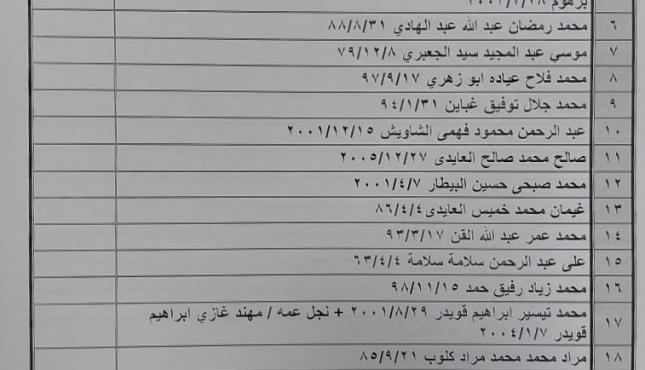 برهوم ٢٠٠١/٧/١٨
٦ محمد رمضان عبد الله عبد الهادي ٨٨/٨/٣١
٧ موسي عبد المجيد سيد الجعبري ٧٩/١٢/٨
٨ محمد فلاح عياده ابو زهري ٩٧/٩/١٧
٩ محمد جلال توفيق غباين ٩٤/١/٣١
١٠ عبد الرحمن محمود فهمى الشاويش ٢٠٠١/١٢/١٥
١١ صالح محمد صالح العايدى ٢٠٠٥/١٢/٢٧
١٢ محمد صبحى حسين البيطار ٢٠٠١/٤/٧
١٣ غيمان محمد خميس العايدى ٨٦/٤/٤
١٤ محمد عمر عبد الله القن ٩٣/٣/١٧
١٥ على عبد الرحمن سلامة سلامة ٦٣/٤/٤
١٦ محمد زياد رفيق حمد ٩٨/١١/١٥
١٧ محمد تيسير ابراهيم قويدر ٢٠٠١/٨/٢٩ + نجل عمه / مهند غازي ابراهيم
قويدر ٢٠٠٤/١/٧
١٨ مراد محمد محمد مراد كلوب ٨٥/٩/٢١